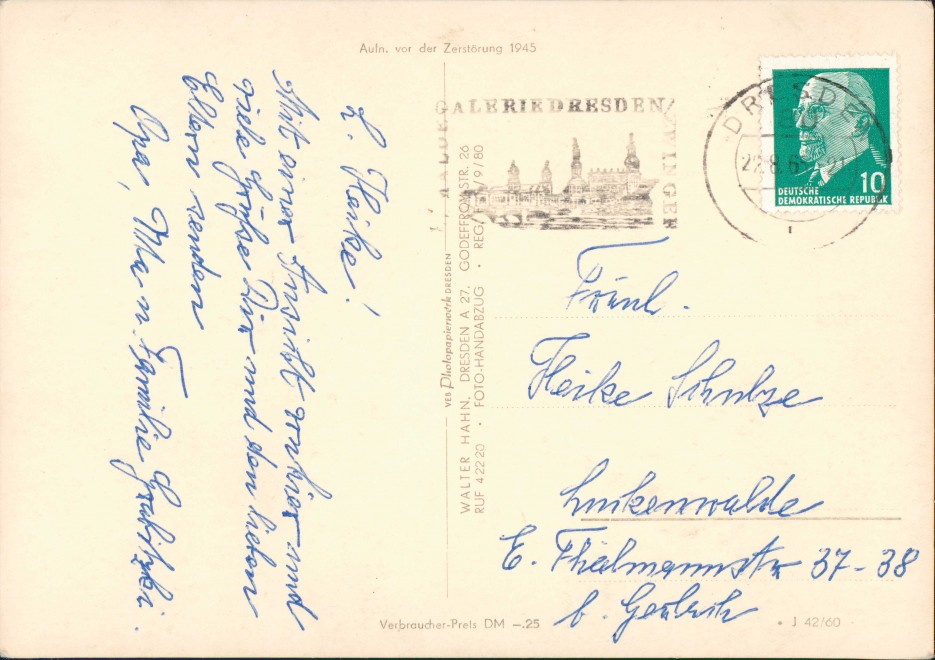 Aufn. vor der Zerstörung 1945
L. Heike!
Mit einer Ansicht von hier und
viele Grüße Dir und den lieben
Eltern senden
Opa, Ma u. Familie
VEB Photopapierwerk DRESDEN
WALTER HAHN, DRESDEN A 27, GODEFFROYSTR. 26
RUF 42220 • FOTO-HANDABZUG • REG. /9/80
GALERIE DRESDEN
ZWINGER
DRESDEN
22.8.6
10
DEUTSCHE
DEMOKRATISCHE REPUBLIK
Fräul.
Heike Schulze
Luckenwalde
E. Thälmannstr 37-38
b.
Verbraucher-Preis DM —.25
• J 42/60